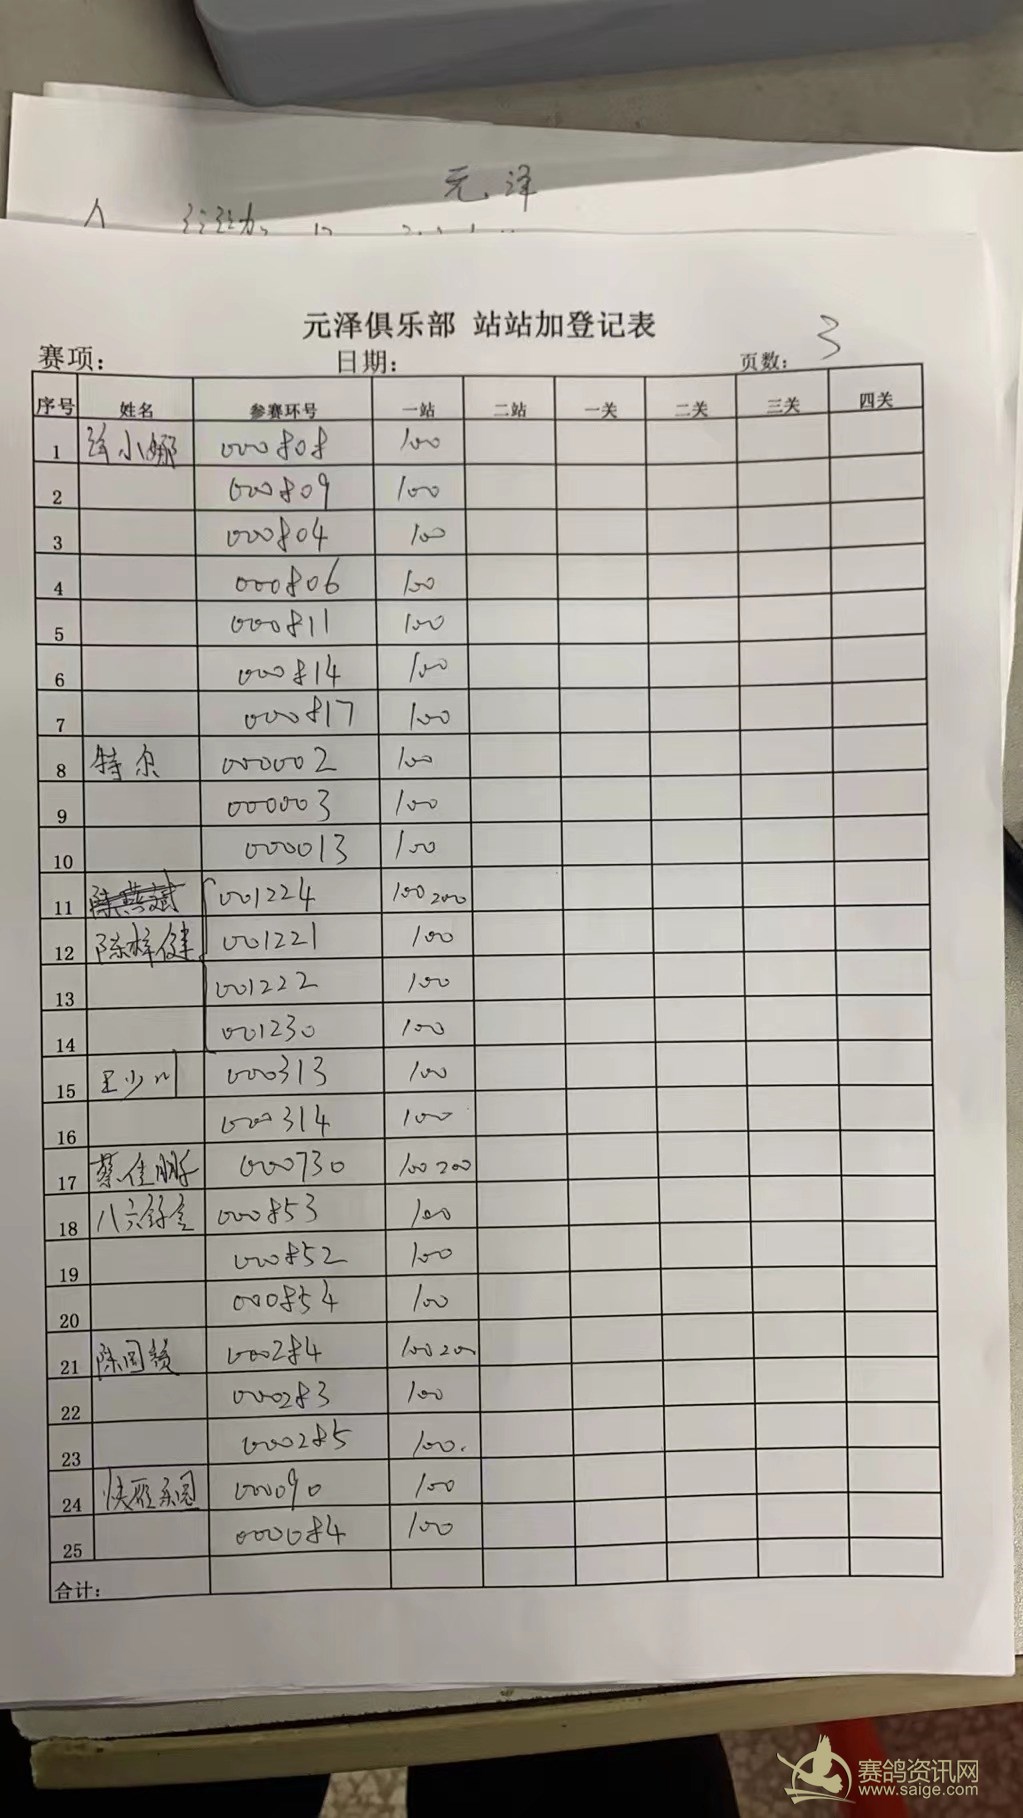 元泽
元泽俱乐部 站站加登记表 3
赛项: 日期: 页数:
序号 姓名 参赛环号 一站 二站 一关 二关 三关 四关
1 徐小娜 000808 100
2 000809 100
3 000804 100
4 000806 100
5 000811 100
6 000814 100
7 000817 100
8 特尔 000002 100
9 000003 100
10 000013 100
11 001224 100 200
12 陈梓健 001221 100
13 001222 100
14 001230 100
15 王少川 000313 100
16 000314 100
17 蔡佳鹏 000730 100 200
18 八六 000853 100
19 000852 100
20 000854 100
21 陈国 000284 100 200
22 000283 100
23 000285 100.
24 000090 100
25 000084 100
合计:
赛鸽资讯网
www.saige.com